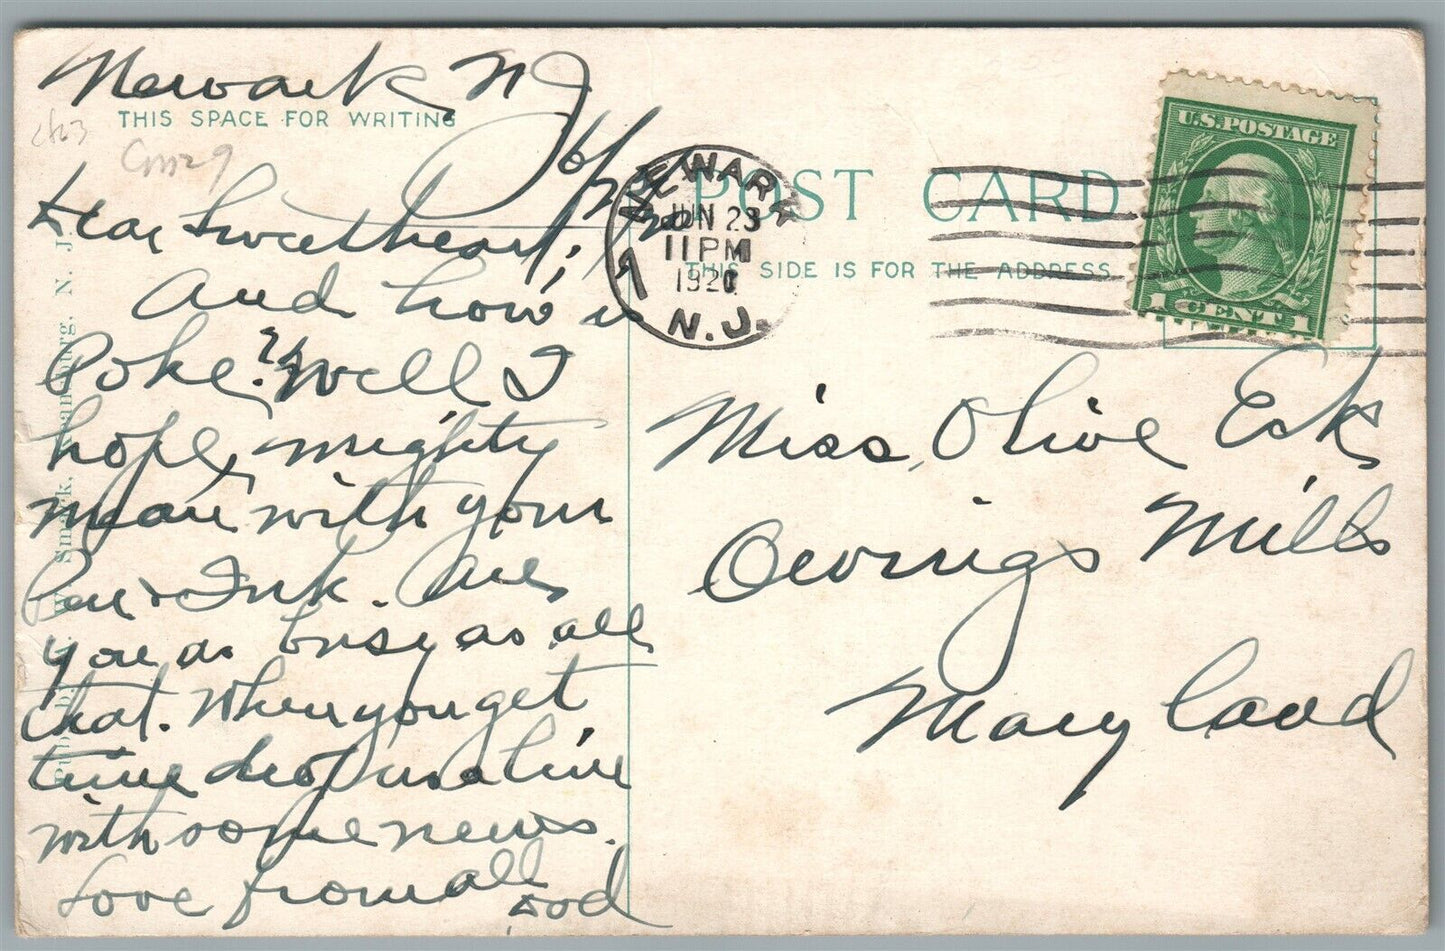 Newark N J
THIS SPACE FOR WRITING
6/23/20
Dear Sweetheart;
And how is
Poke? Well I
hope, mighty
mean with your
Pen & Ink. Are
you as busy as all
that. When you get
time drop us a line
with some news.
Love from all
POST CARD
THIS SIDE IS FOR THE ADDRESS
NEWARK
JUN 23
11 PM
1920
N.J.
7
U.S. POSTAGE
1 CENT 1
Miss Olive Eck
Owings Mills
Maryland